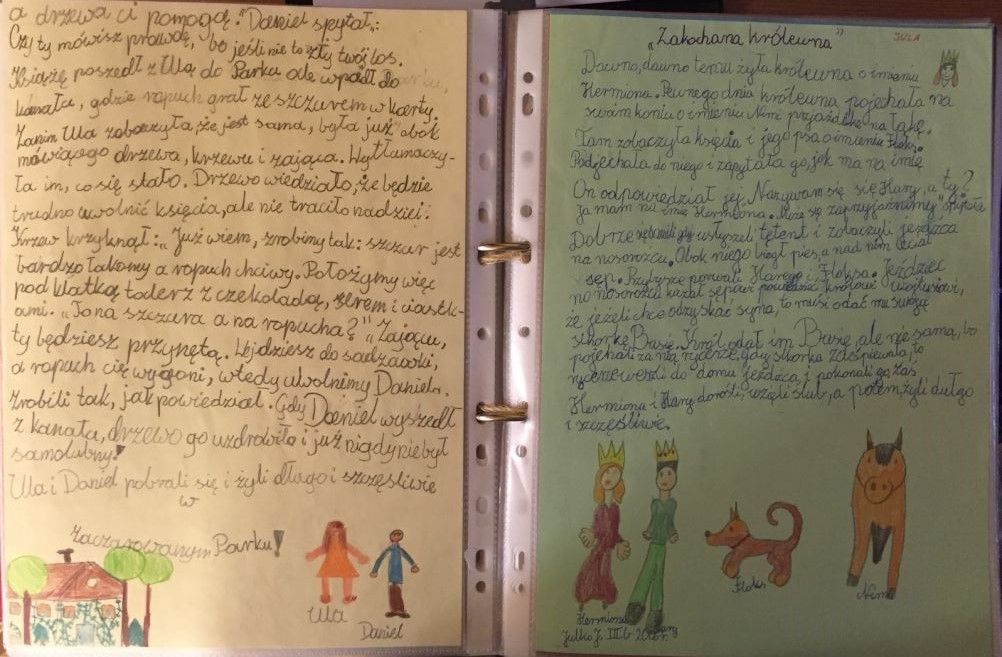 a drzewa ci pomogą." Daniel spytał":
Czy ty mówisz prawdę, bo jeśli nie to zły twój los.
Książę poszedł z Ulą do Parku ale wpadł do
kanału, gdzie ropuch grał ze szczurem w karty.
Zanim Ula zobaczyła, że jest sama, była już obok
mówiącego drzewa, krzewu i zająca. Wytłumaczy-
ła im, co się stało. Drzewo wiedziało, że będzie
trudno uwolnić księcia, ale nie traciło nadziei.
Krzew krzyknął: „Już wiem, zrobimy tak: szczur jest
bardzo łakomy a ropuch chciwy. Położymy więc
pod klatką talerz z czekoladą, serem i ciastk-
ami. „To na szczura a na ropucha?" „Zającu,
ty będziesz przynętą. Wejdziesz do sadzawki,
a ropuch cię wygoni, wtedy uwolnimy Daniela.
Zrobili tak, jak powiedział. Gdy Daniel wyszedł
z kanału, drzewo go uzdrowiło i już nigdy nie był
samolubny!
Ula i Daniel pobrali się i żyli długo i szczęśliwie
w
Zaczarowanym Parku!
Ula
Daniel
„Zakochana królewna"
JULA
Dawno, dawno temu żyła królewna o imieniu
Hermiona. Pewnego dnia królewna pojechała na
swoim koniu o imieniu Nimi przjażdżkę na łąkę.
Tam zobaczyła księcia i jego psa o imieniu Floks.
Podjechała do niego i zapytała go, jak ma na imię
On odpowiedział jej. Nazywam się się Hary, a ty?
Ja mam na imię Hermiona. Może się zaprzyjaźnimy"
Dobrze usłyszeli tętent i zobaczyli jeźdźca
na nosorożcu. Obok niego biegł pies, a nad nim leciał
sęp. Przybysze porwali Harego i Floksa. Jeździec
na nosorożcu kazał sępowi powiedzieć królowi
że jeżeli chce odzyskać syna, to musi odać mu swoją
sikorkę Busię. Król odał im Busię, ale nie sama, bo
pojechali za nią rycerze, gdy sikorka zaśpiewała, to
rycerze weszli do domu jeźdźca i pokonali go, zaś
Hermiona i Hary dorośli, wzięli ślub, a potem żyli długo
i szczęśliwie.
Hermiona
Hary
Floks
Nimi
Julka J. III b